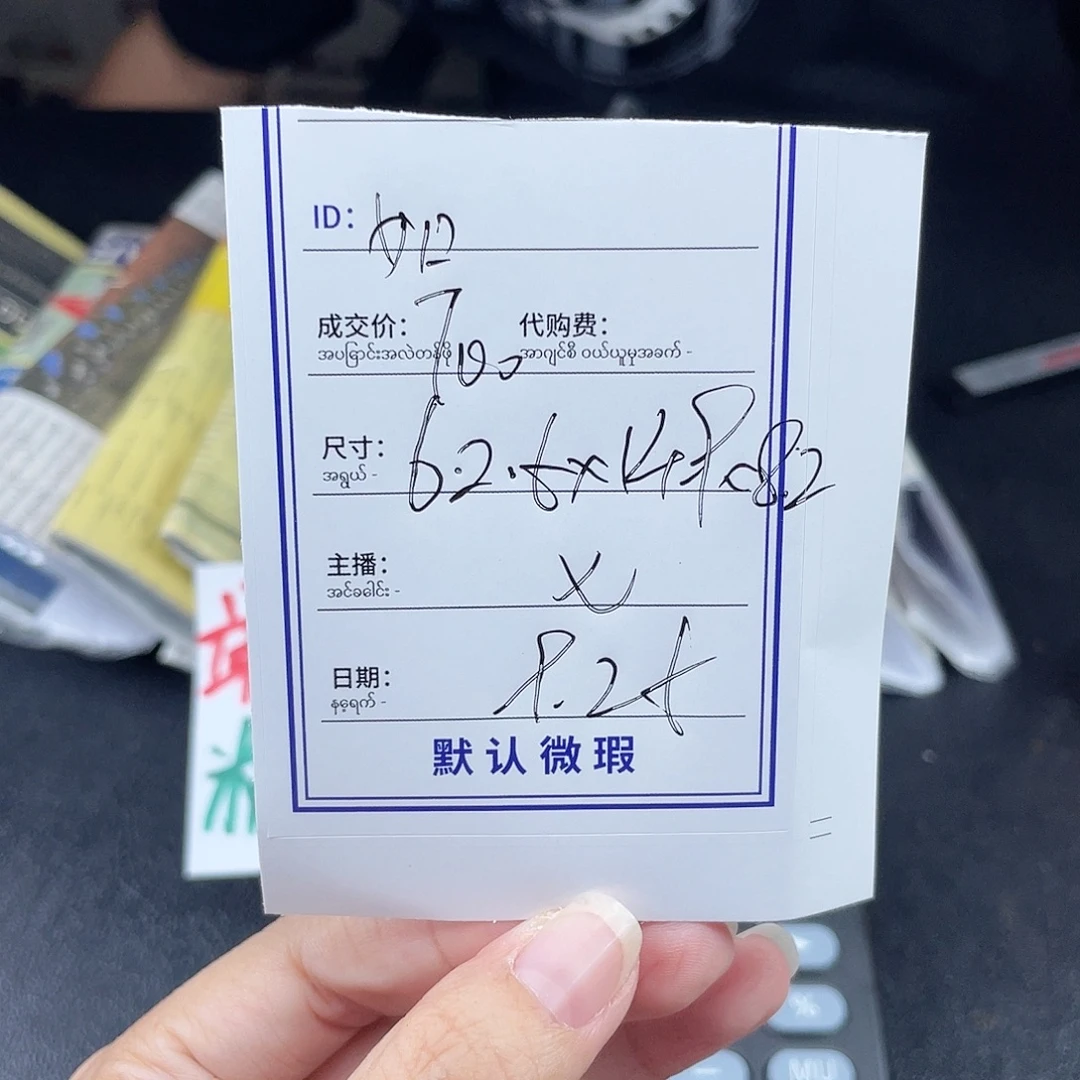 ID: 如
成交价: 700 代购费:
အပမြောင်းအလဲတန်ဖိုး အာဂျင်စီ ဝယ်ယူမှုအခက် -
尺寸: 62.6x14.9x8.2
အရွယ် -
主播: x
အင်ခခေါင်း -
日期: 9.25
နေ့ရက် -
默认微瑕